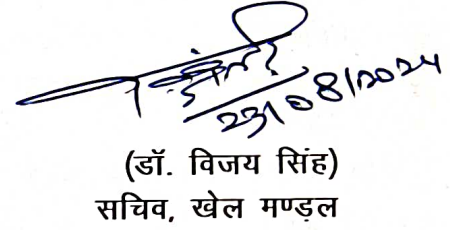 23/08/2024
(डॉ. विजय सिंह)
सचिव, खेल मण्ड़ल